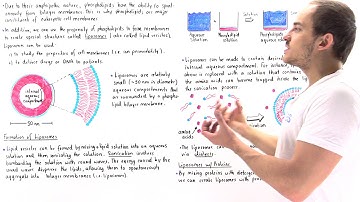 •Due to their amphipathic nature, phospholipids have the ability to spont-
aneously form bilayer membranes. This is why phospholipids are major
constituents of eukaryotic cell membranes.
•In addition, we can use the propensity of phospholipids to form membranes
to create special structures called liposomes (also called lipid vesicles).
Liposomes can be used:
i) to study the properties of cell membranes (i.e. ion permeability).
ii) to deliver drugs or DNA to patients.
internal
aqueous
compartment
50 nm
•Liposomes are relatively
small (~50 nm in diameter)
aqueous compartments that
are surrounded by a phospho-
lipid bilayer membrane.
Formation of Liposomes
•Lipid vesicles can be formed by mixing lipid solution into an aqueous
solution and then sonicating the solution. Sonication involves
bombarding the solution with sound waves. The energy carried by the
sound waves disperses the lipids, allowing them to spontaneously
aggregate into bilayer membranes (i.e. liposomes).
Aqueous
solution
Phospholipid
solution
Phospholipid
aqueous
•Liposomes can be made to contain
internal aqueous compartment. For instance,
above is replaced with a solution that contains
the amino acids can become trapped inside the
the sonication process.
amino
acids
•The liposomes can
via dialysis.
Liposomes w/ Proteins
•By mixing proteins with detergent
we can create liposomes with